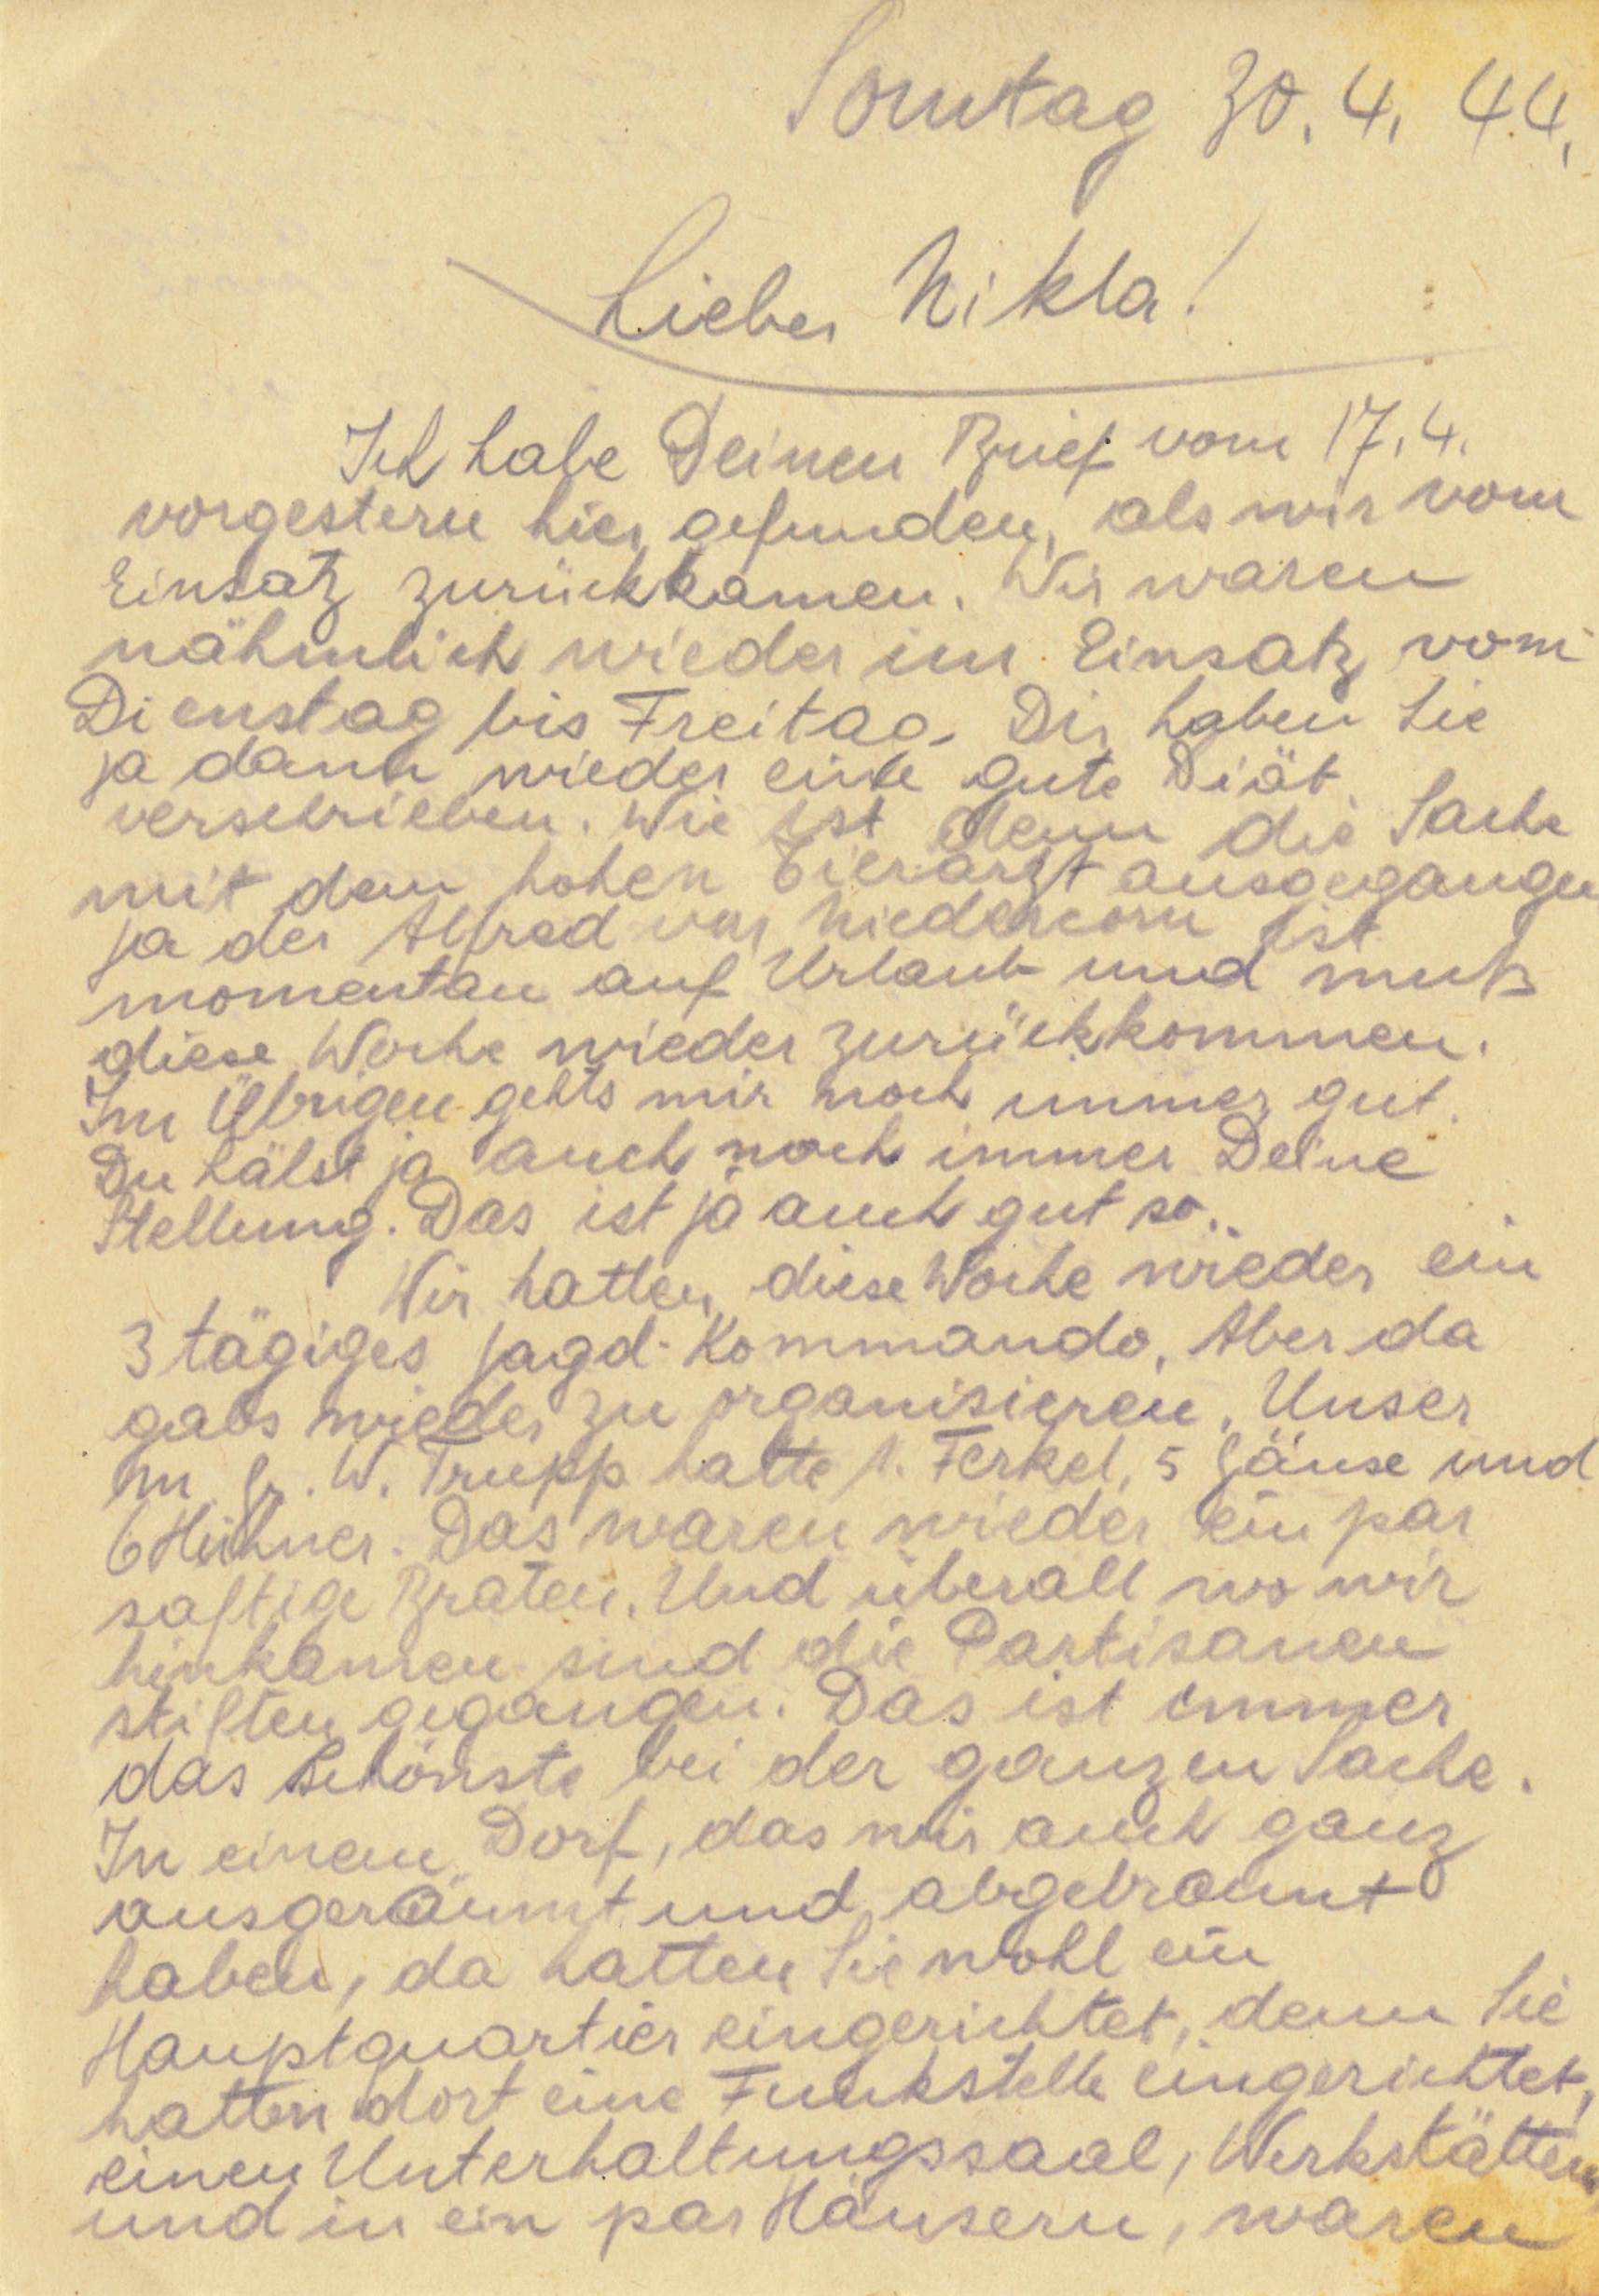 Sonntag 30. 4. 44.
Lieber Nikla!
Ich habe Deinen Brief vom 17. 4.
vorgestern hier gefunden, als wir vom
Einsatz zurückkamen. Wir waren
nähmlich wieder im Einsatz vom
Dienstag bis Freitag. Dir haben Sie
ja dann wieder eine gute Diät
verschrieben. Wie ist denn die Sache
mit dem hohen Tierarzt ausgegangen
ja der Alfred von Niedercorn ist
momentan auf Urlaub und muß
diese Woche wieder zurückkommen.
Im Übrigen gehts mir noch immer gut.
Du hälst ja auch noch immer Deine
Stellung. Das ist ja auch gut so.
Wir hatten diese Woche wieder ein
3 tägiges Jagd-Kommando. Aber da
gabs wieder zu organisieren. Unser
m. Gr. W. Trupp hatte 1. Ferkel, 5 Gänse und
6 Hühner. Das waren wieder ein par
saftige Braten. Und überall wo wir
hinkamen sind die Partisanen
stiften gegangen. Das ist immer
das Schönste bei der ganzen Sache.
In einem Dorf, das wir auch ganz
ausgeräumt und abgebrannt
haben, da hatten Sie wohl ein
Hauptquartier eingerichtet, denn Sie
hatten dort eine Funkstelle eingerichtet,
einen Unterhaltungssaal, Werkstätten
und in ein par Häusern, waren